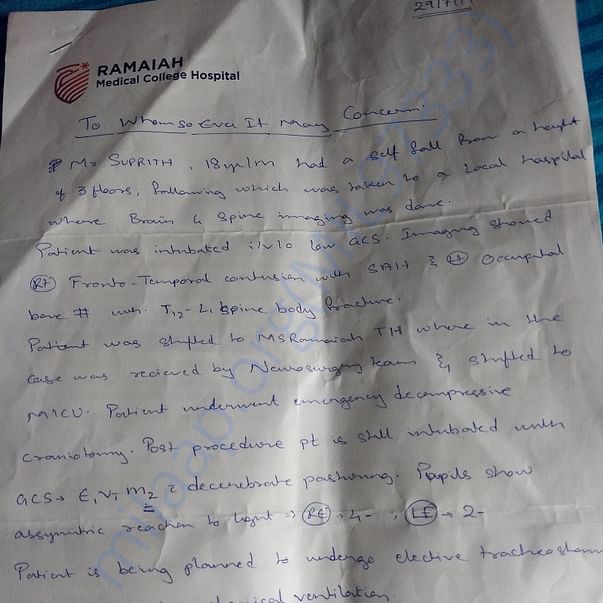 29/7/1
RAMAIAH
Medical College Hospital
To Whom so Ever It May Concern.
Mr SUPRITH, 18yr/m had a self fall from a height
of 3 floors, following which was taken to a local hospital
where Brain & Spine imaging was done.
Patient was intubated i/v/o low GCS. Imaging showed
Rt Fronto-Temporal contusion with SAH & Lt Occipital
bone # with T12-L1 Spine body fracture.
Patient was shifted to MSRamaiah TH where in the
case was recieved by Neurosurgery team & shifted to
MICU. Patient underwent emergency decompressive
craniotomy. Post procedure pt is still intubated with
GCS → E1 VT M2 c decerebrate posturing. Pupils show
assymetric reaction to light → RE → 4 - , LE → 2 -
Patient is being planned to undergo elective tracheostom
mechanical ventilation.
milaap.org